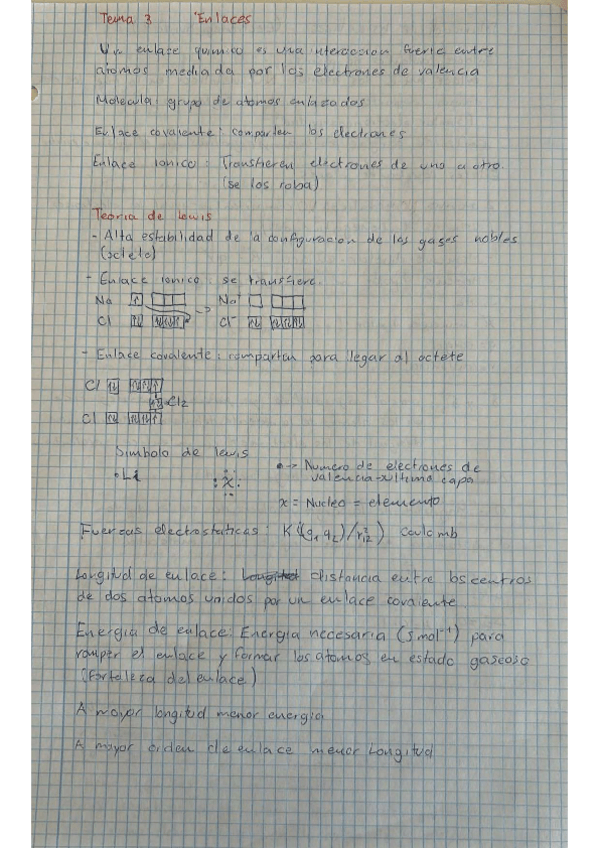 Tema 3 Enlaces
Un enlace quimico es una interaccion fuerte entre
atomos mediada por los electrones de valencia
Molecula: grupo de atomos enlazados
Enlace covalente: comparten los electrones
Enlace ionico: Transfieren electrones de uno a otro.
(se los roba)
Teoria de Lewis
- Alta estabilidad de la configuracion de los gases nobles
(octeto)
- Enlace ionico se transfiere.
Na -> Na+
Cl Cl-
- Enlace covalente: compartan para llegar al octete
Cl
Cl2
Cl
Simbolo de lewis
·Li :x: -> Numero de electrones de
valencia-ultima capa
x = Nucleo = elemento
Fuerzas electrostaticas: K((q1 q2)/r²12) Coulomb
Longitud de enlace: distancia entre los centros
de dos atomos unidos por un enlace covalente
Energia de enlace: Energia necesaria (J mol⁻¹) para
romper el enlace y formar los atomos en estado gaseoso
(fortaleca del enlace)
A mayor longitud menor energia
A mayor orden de enlace menor Longitud